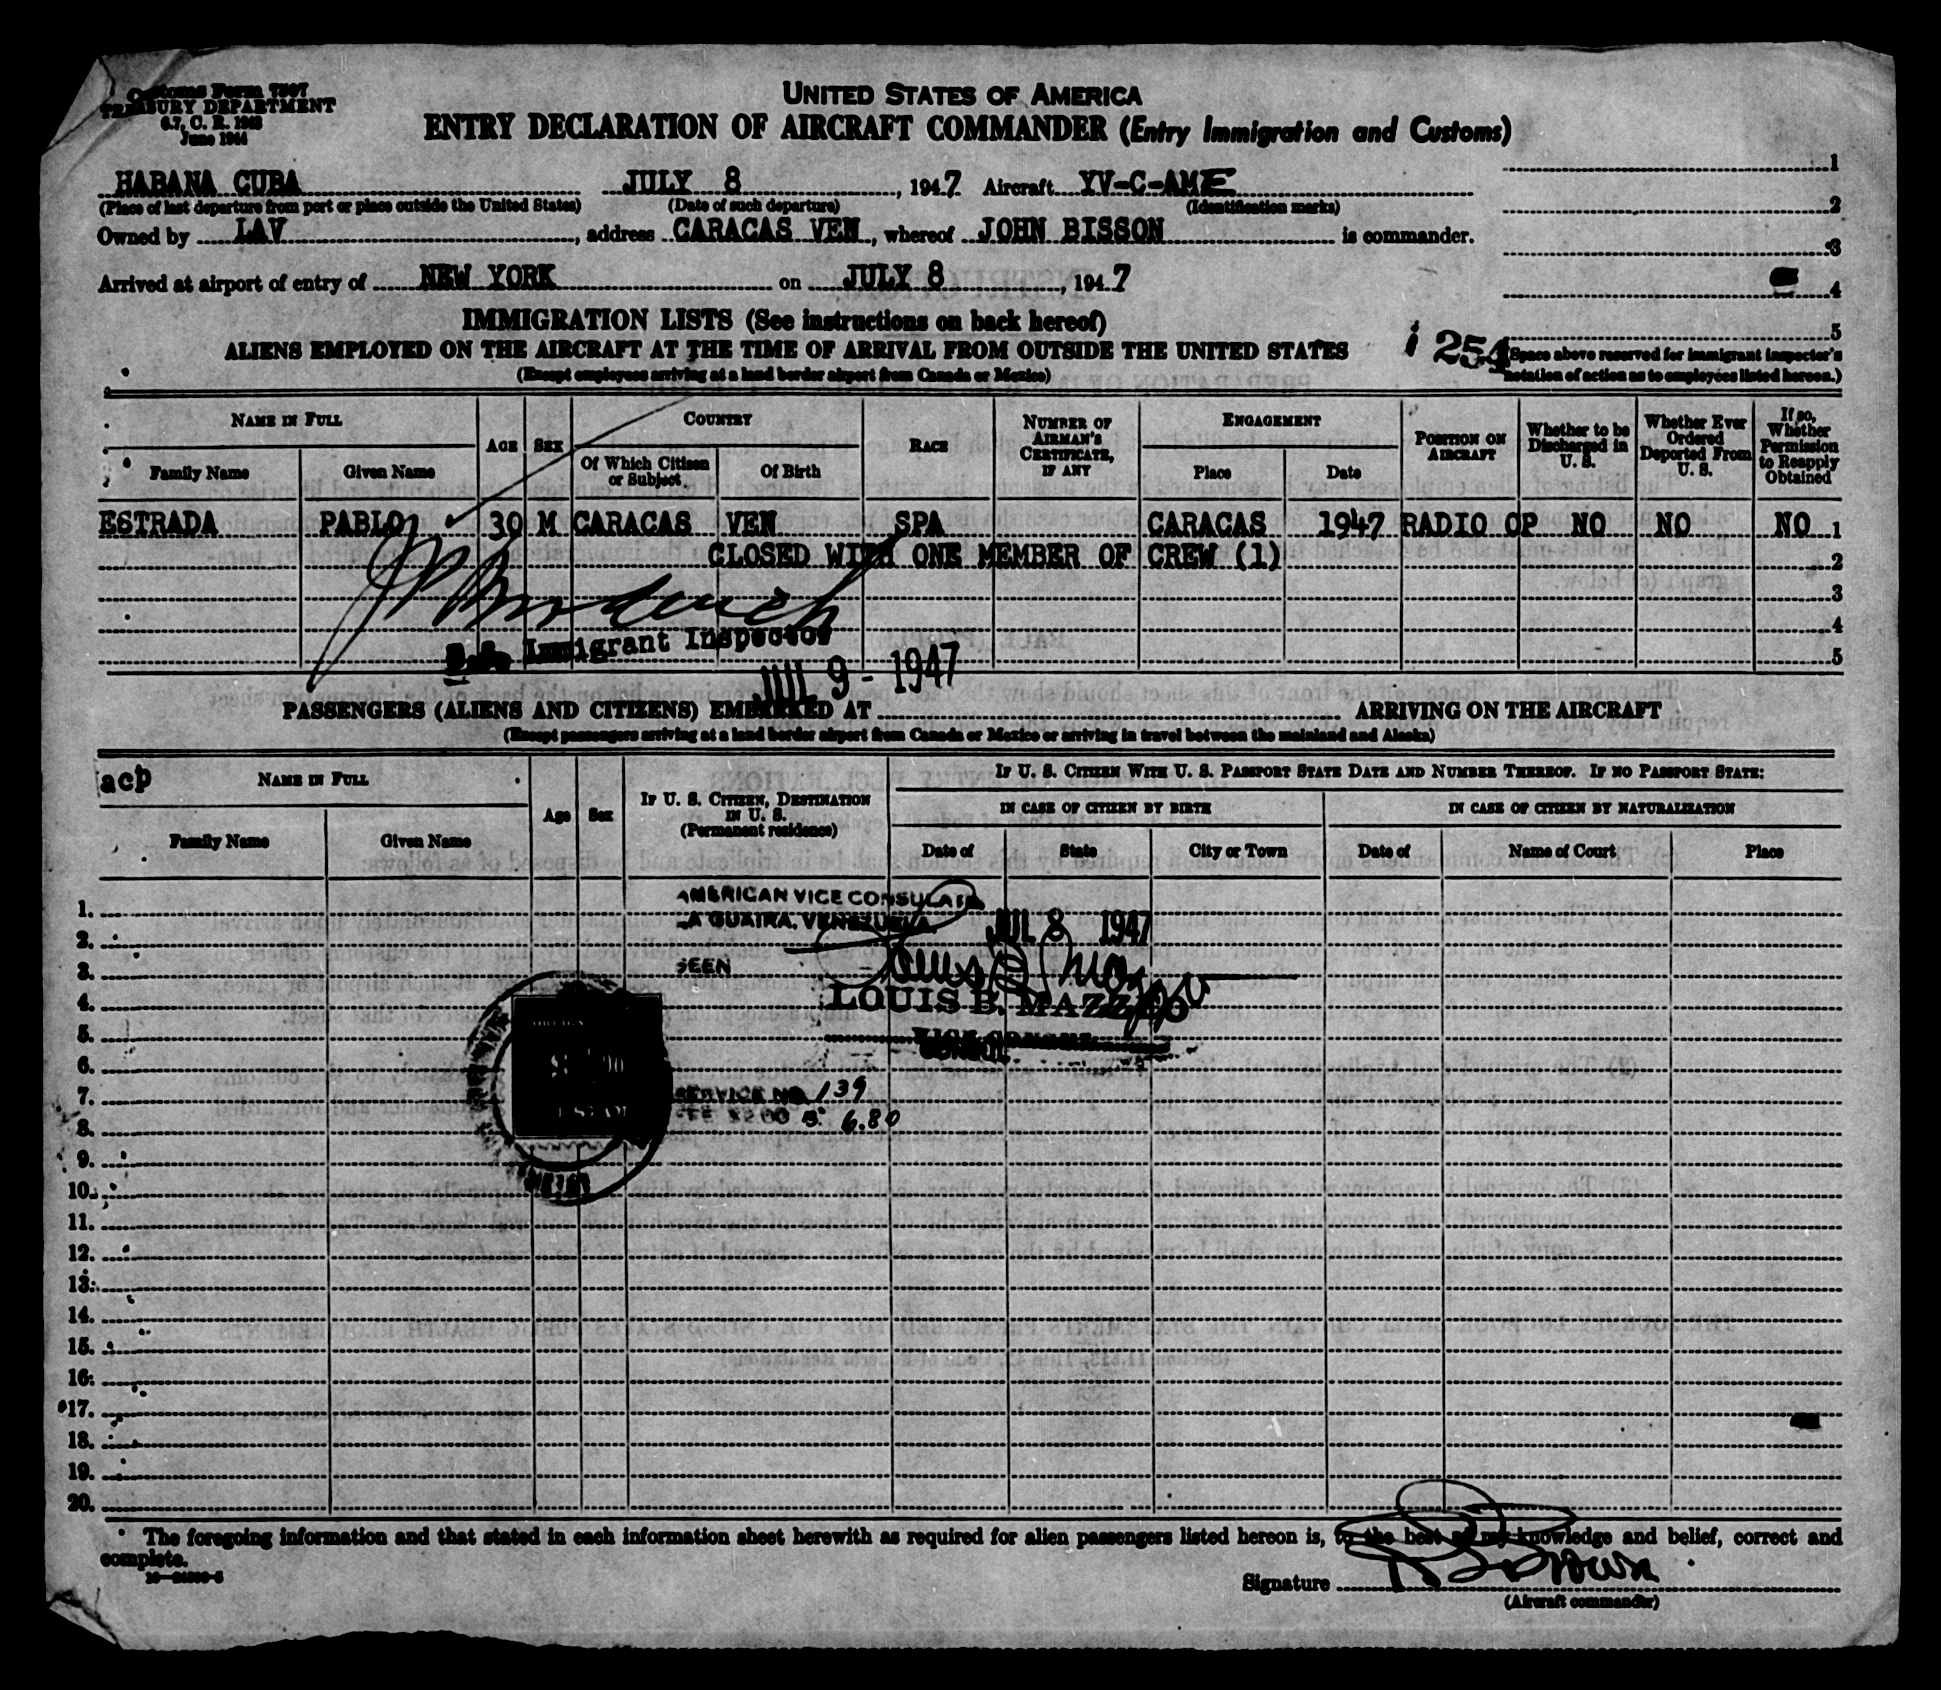 Customs Form 7507
TREASURY DEPARTMENT
6.7, C. R. 1943
June 1944
UNITED STATES OF AMERICA
ENTRY DECLARATION OF AIRCRAFT COMMANDER (Entry Immigration and Customs)
HABANA CUBA JULY 8, 1947 Aircraft YV-C-AME
(Place of last departure from port or place outside the United States) (Date of such departure) (Identification marks)
Owned by LAV, address CARACAS VEN, whereof JOHN BISSON is commander.
Arrived at airport of entry of NEW YORK on JULY 8, 1947
1
2
3
4
5
(Space above reserved for immigrant inspector's
notation of action as to employees listed hereon.)
IMMIGRATION LISTS (See instructions on back hereof)
ALIENS EMPLOYED ON THE AIRCRAFT AT THE TIME OF ARRIVAL FROM OUTSIDE THE UNITED STATES
1 254
(Except employees arriving at a land border airport from Canada or Mexico)
NAME IN FULL AGE SEX COUNTRY RACE NUMBER OF AIRMAN'S CERTIFICATE, IF ANY ENGAGEMENT POSITION ON AIRCRAFT Whether to be Discharged in U. S. Whether Ever Ordered Deported From U. S. If so, Whether Permission to Reapply Obtained
Family Name Given Name Of Which Citizen or Subject Of Birth Place Date
ESTRADA PABLO 30 M CARACAS VEN SPA CARACAS 1947 RADIO OP NO NO NO 1
CLOSED WITH ONE MEMBER OF CREW (1) 2
3
4
Immigrant Inspector
5
JUL 9 - 1947
PASSENGERS (ALIENS AND CITIZENS) EMBARKED AT ARRIVING ON THE AIRCRAFT
(Except passengers arriving at a land border airport from Canada or Mexico or arriving in travel between the mainland and Alaska)
acp
NAME IN FULL Age Sex IF U. S. CITIZEN, DESTINATION IN U. S. (Permanent residence) IF U. S. CITIZEN WITH U. S. PASSPORT STATE DATE AND NUMBER THEREOF. IF NO PASSPORT STATE:
IN CASE OF CITIZEN BY BIRTH IN CASE OF CITIZEN BY NATURALIZATION
Family Name Given Name Date of State City or Town Date of Name of Court Place
AMERICAN VICE CONSULATE
1.
LA GUAIRA, VENEZUELA. JUL 8 1947
2.
SEEN
3.
LOUIS B. MAZZEO
4.
5.
VICE CONSUL
CONSUL
6.
7.
SERVICE NO. 139
FEE $2.00 B. 6.80
8.
9.
10.
11.
12.
13.
14.
15.
16.
17.
18.
19.
20.
The foregoing information and that stated in each information sheet herewith as required for alien passengers listed hereon is, to the best of my knowledge and belief, correct and
complete.
Signature
(Aircraft commander)